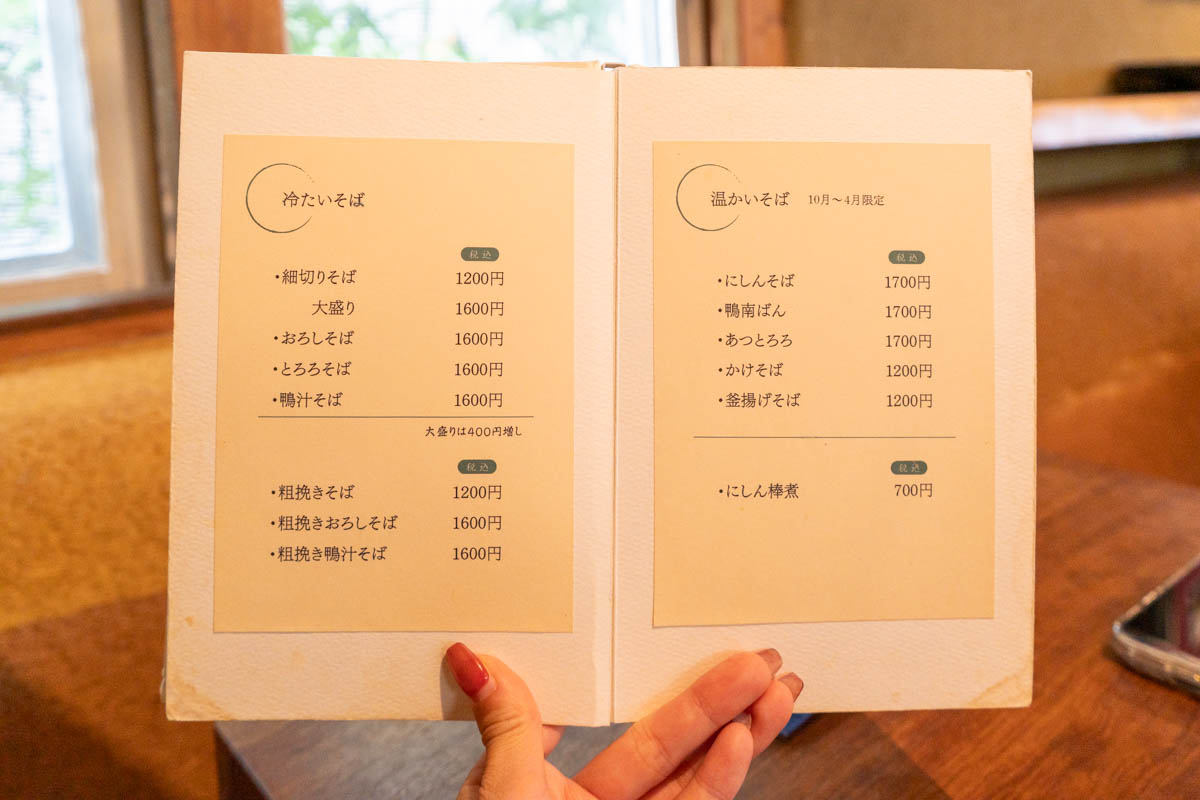 冷たいそば
税込
・細切りそば 1200円
大盛り 1600円
・おろしそば 1600円
・とろろそば 1600円
・鴨汁そば 1600円
大盛りは400円増し
税込
・粗挽きそば 1200円
・粗挽きおろしそば 1600円
・粗挽き鴨汁そば 1600円
温かいそば 10月～4月限定
税込
・にしんそば 1700円
・鴨南ばん 1700円
・あつとろろ 1700円
・かけそば 1200円
・釜揚げそば 1200円
税込
・にしん棒煮 700円